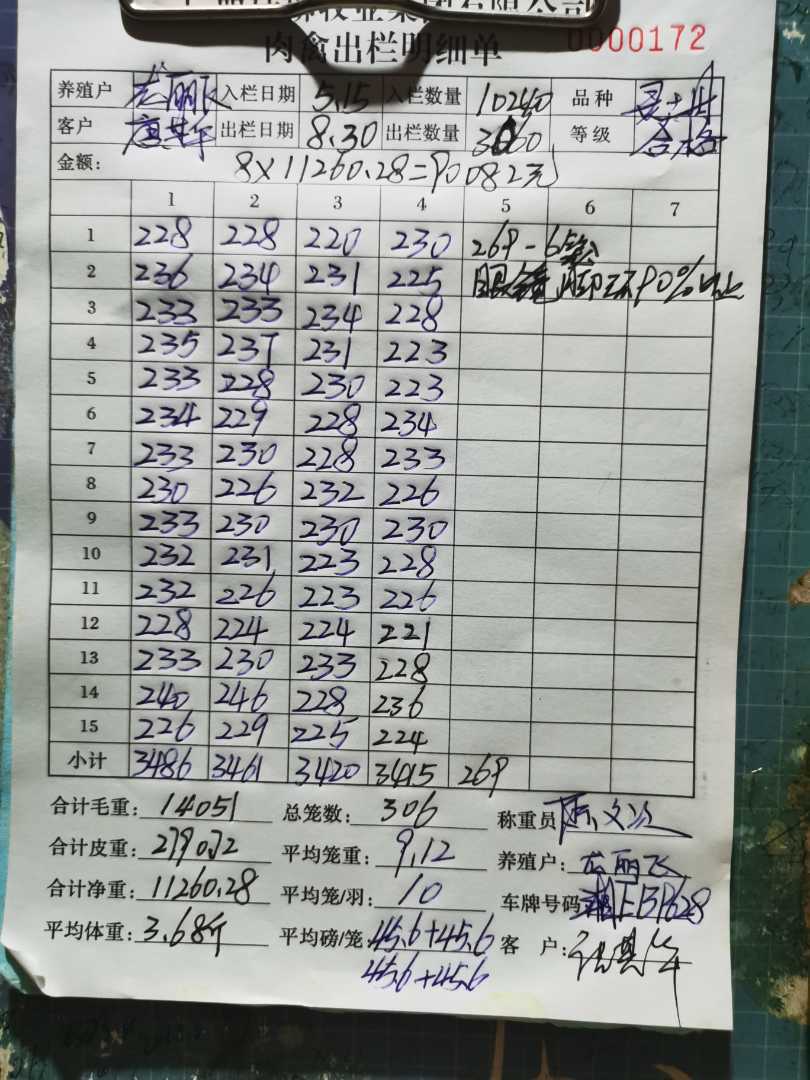 肉禽出栏明细单 0000172
养殖户 入栏日期 5.15 入栏数量 10240 品种
客户 出栏日期 8.30 出栏数量 3060 等级 合格
金额: 8×11260.28=90082元
1 2 3 4 5 6 7
1 228 228 220 230 269-6
2 236 234 231 225 眼镜 90%以上
3 233 233 234 228
4 235 237 231 223
5 233 228 230 223
6 234 229 228 234
7 233 230 228 233
8 230 226 232 226
9 233 230 230 230
10 232 231 223 228
11 232 226 223 226
12 228 224 224 221
13 233 230 233 228
14 240 246 228 236
15 226 229 225 224
小计 3486 3461 3420 3415 269
合计毛重: 14051 总笼数: 306 称重员
合计皮重: 平均笼重: 9.12 养殖户:
合计净重: 11260.28 平均笼/羽: 10 车牌号码
平均体重: 3.68斤 平均磅/笼 45.6+45.6 客 户:
45.6+45.6